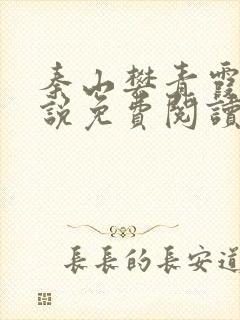 秦山樊青霞
說免費閱讀
長長的長安道